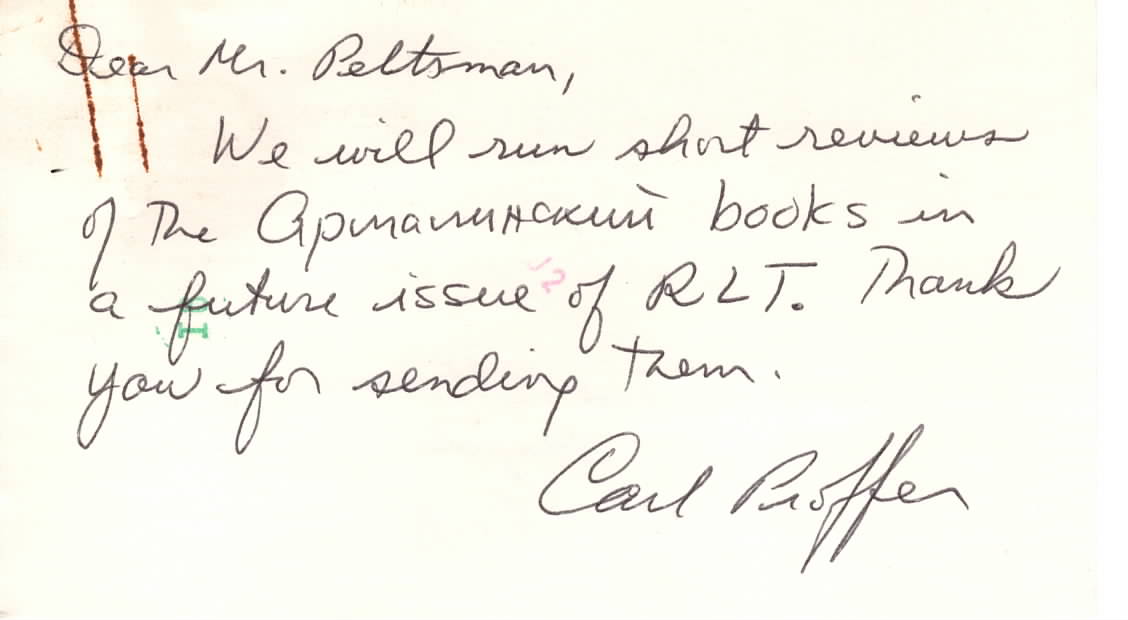 Dear Mr. Peltsman,
We will run short reviews
of the Армалинский books in
a future issue of RLT. Thank
you for sending them.
Carl Proffer